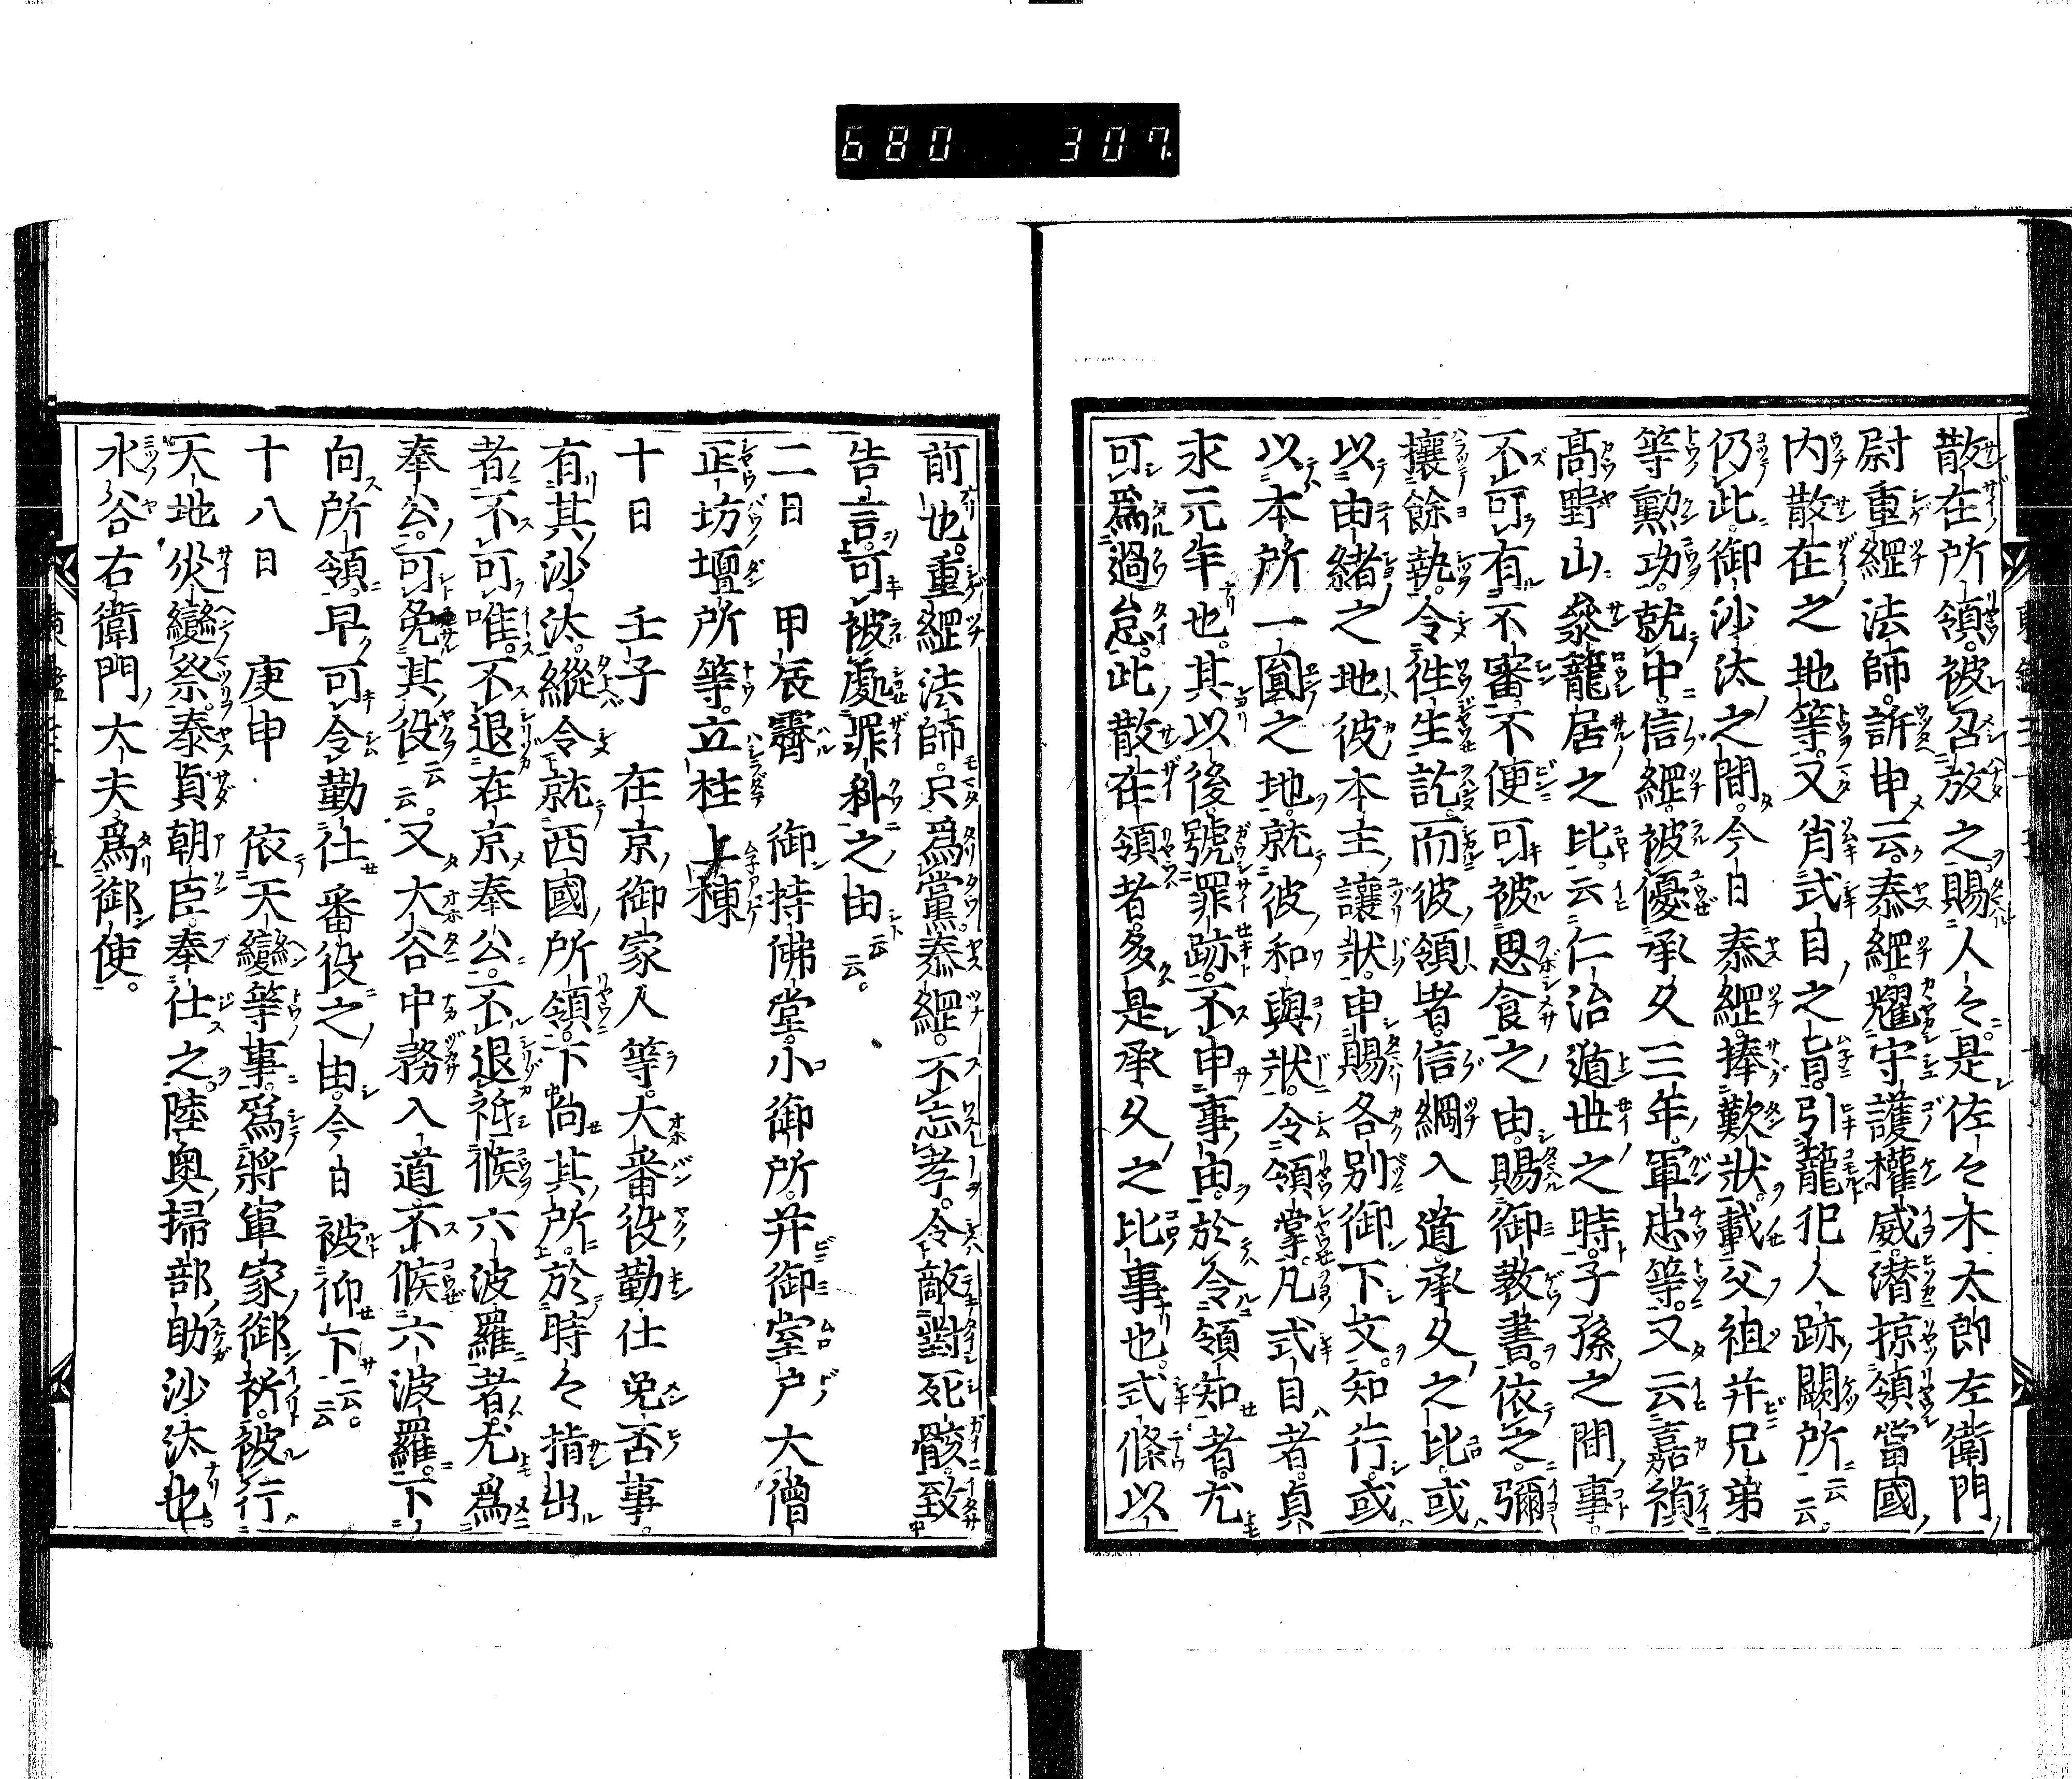 680 307
散在所領。被召放之賜人々是佐々木太郎左衛門
尉重綱法師。訴申云。泰綱。耀守護權威。潜掠領當國
内散在之地等。又背式目之旨。引籠犯人跡闕所云云。
仍此御沙汰之間。今日泰綱。捧歎狀。載父祖并兄弟
等勲功。就中。信綱。被優承久三年軍忠等。又云嘉禎
高野山參籠居之比。云仁治遁世之時。子孫之間事。
不可有不審。不便可被思食之由。賜御教書。依之。彌
攘餘執。令徃生訖。而彼領者。信綱入道。承久之比。或
以由緒之地彼本主讓狀。申賜各別御下文。知行。或
以本所一圓之地。就彼和與狀。令領掌。凡式目者。貞
永元年也。其以後號罪跡。不申事由。於令領知者。尤
可爲過怠。此散在領者。多是承久之比事也。式條以
前也。重綱法師。只爲黨泰綱。不忘孝。令敵對死骸。致
告言。可被處罪科之由云云。
二日 甲辰霽 御持佛堂。小御所。并御室戸大僧
正坊壇所等。立柱上棟
十日 壬子 在京御家人等。大番役勤仕免否事。
有其沙汰。縱令就西國所領。下向其所。於時々指出
者。不可唯。不退在京奉公。不退祗候六波羅者。尤爲
奉公。可免其役云云。又大谷中務入道不候六波羅。下
向所領。早可令勤仕番役之由。今日被仰下云云。
十八日 庚申 依天變等事。爲將軍家御祈。被行
天地災變祭。泰貞朝臣。奉仕之。陸奥掃部助沙汰也。
水谷右衛門大夫爲御使。